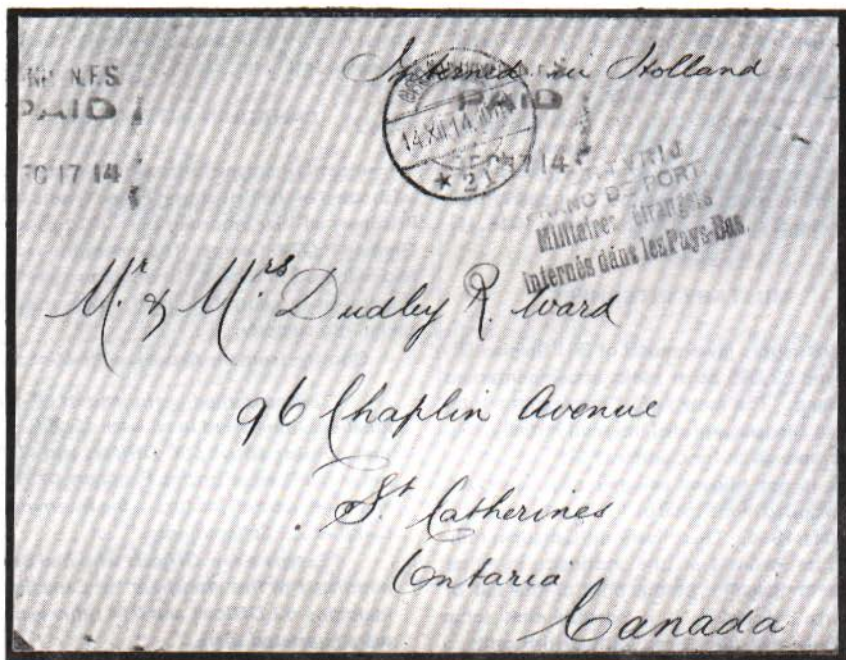 Interned in Holland
N.F.S.
PAID
PAID
14.XII.14
17 14
* 21
FRANC DE PORT
Militaires étrangers
internés dans les Pays-Bas.
Mr & Mrs Dudley R. Ward
96 Chaplin Avenue
St Catherines
Ontario
Canada